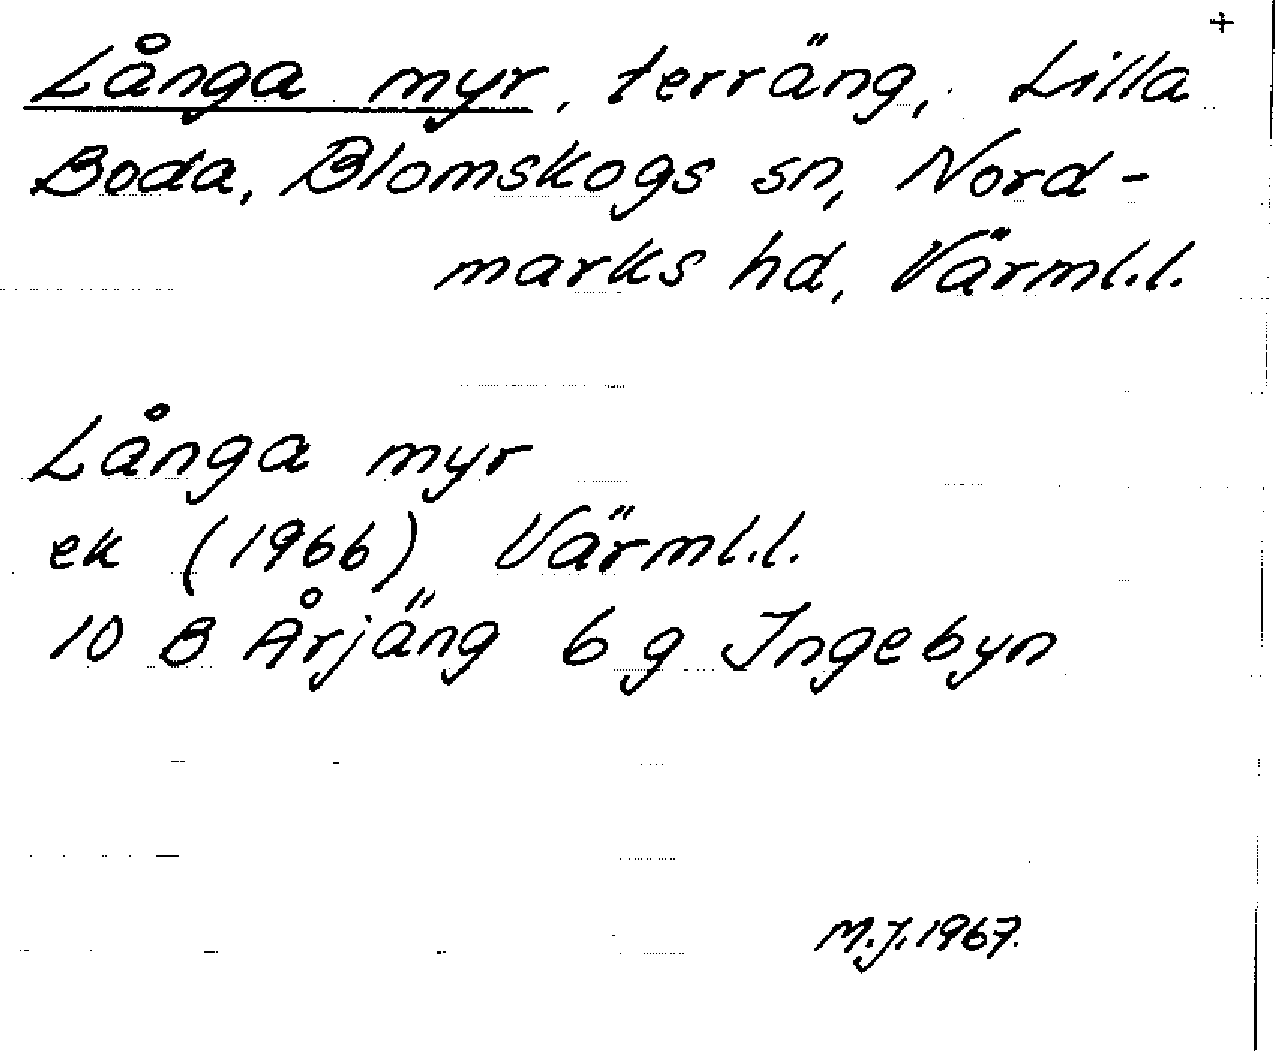 +
Långa myr, terräng, Lilla
Boda, Blomskogs sn, Nord-
marks hd, Värml.l.
Långa myr
ek (1966) Värml.l.
10 B Årjäng 6 g Ingebyn
M.J. 1967.